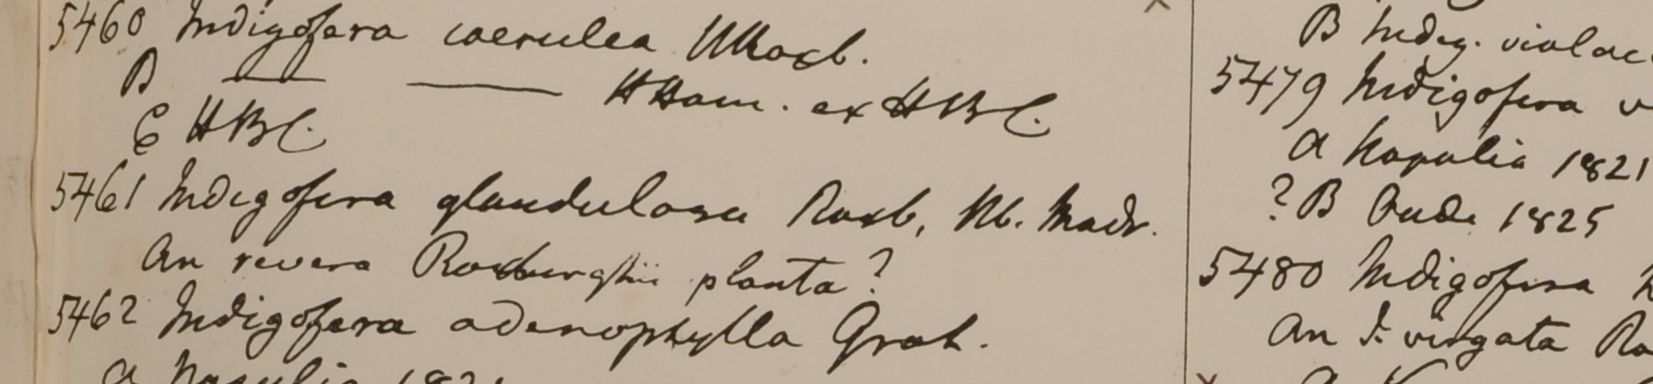 5460 Indigofera coerulea HRoxb.
B —— —— HHam. ex HBC.
C HBC.
5461 Indigofera glandulosa Roxb, Hb. Madr.
An revera Roxburghii planta?
5462 Indigofera adenophylla Grah.
a Napalia 1821
B Indig. violac
5479 Indigofera v
a Napalia 1821
?B Oude 1825
5480 Indigofera
An I. virgata Ro